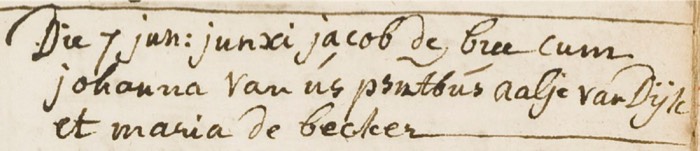 Die 7 jun: junxi jacob de bree cum
johanna van us psntbus aalje van Dijk
et maria de becker